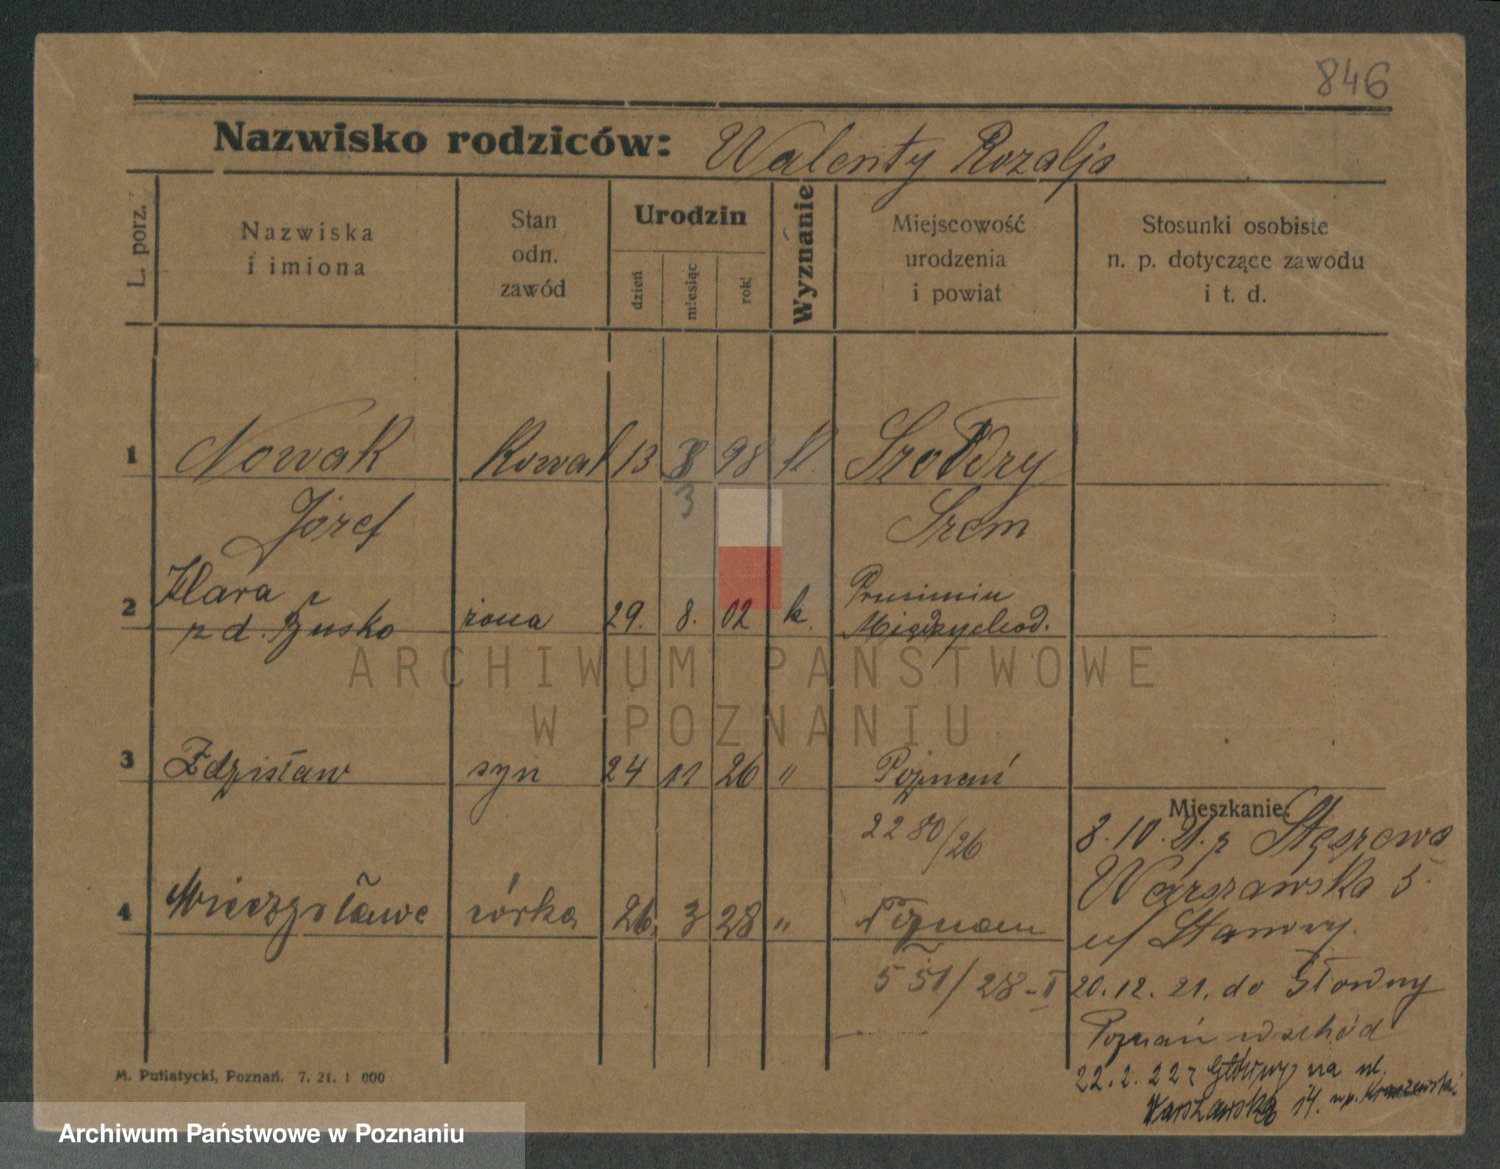 846
Nazwisko rodziców: Walenty Rozalja
L. porz.
Nazwiska
i imiona
Stan
odn.
zawód
Urodzin
dzień
miesiąc
rok
Wyznanie
Miejscowość
urodzenia
i powiat
Stosunki osobiste
n. p. dotyczące zawodu
i t. d.
1 Nowak Kowal 13 8 98 k. Szołdry
3
Józef Śrem
2 Klara
z d. Żusko żona 29. 8. 02 k. Prusimiu
Międzychod.
ARCHIWUM PAŃSTWOWE
W POZNANIU
3 Zdzisław syn 24 11 26 " Poznań
2280/26
4 Mieczysława córka 26 3 28 " Poznań
551/28-I
Mieszkanie:
8.10.21. z Stęszewa
Warszawska 5.
u/ Stanory.
20.12.21. do Głowny
Poznań wschód
22.2.22 z Główny na ul.
Warszawska 14. Kraszewski
M. Putiatycki, Poznań. 7. 21. 1 000
Archiwum Państwowe w Poznaniu